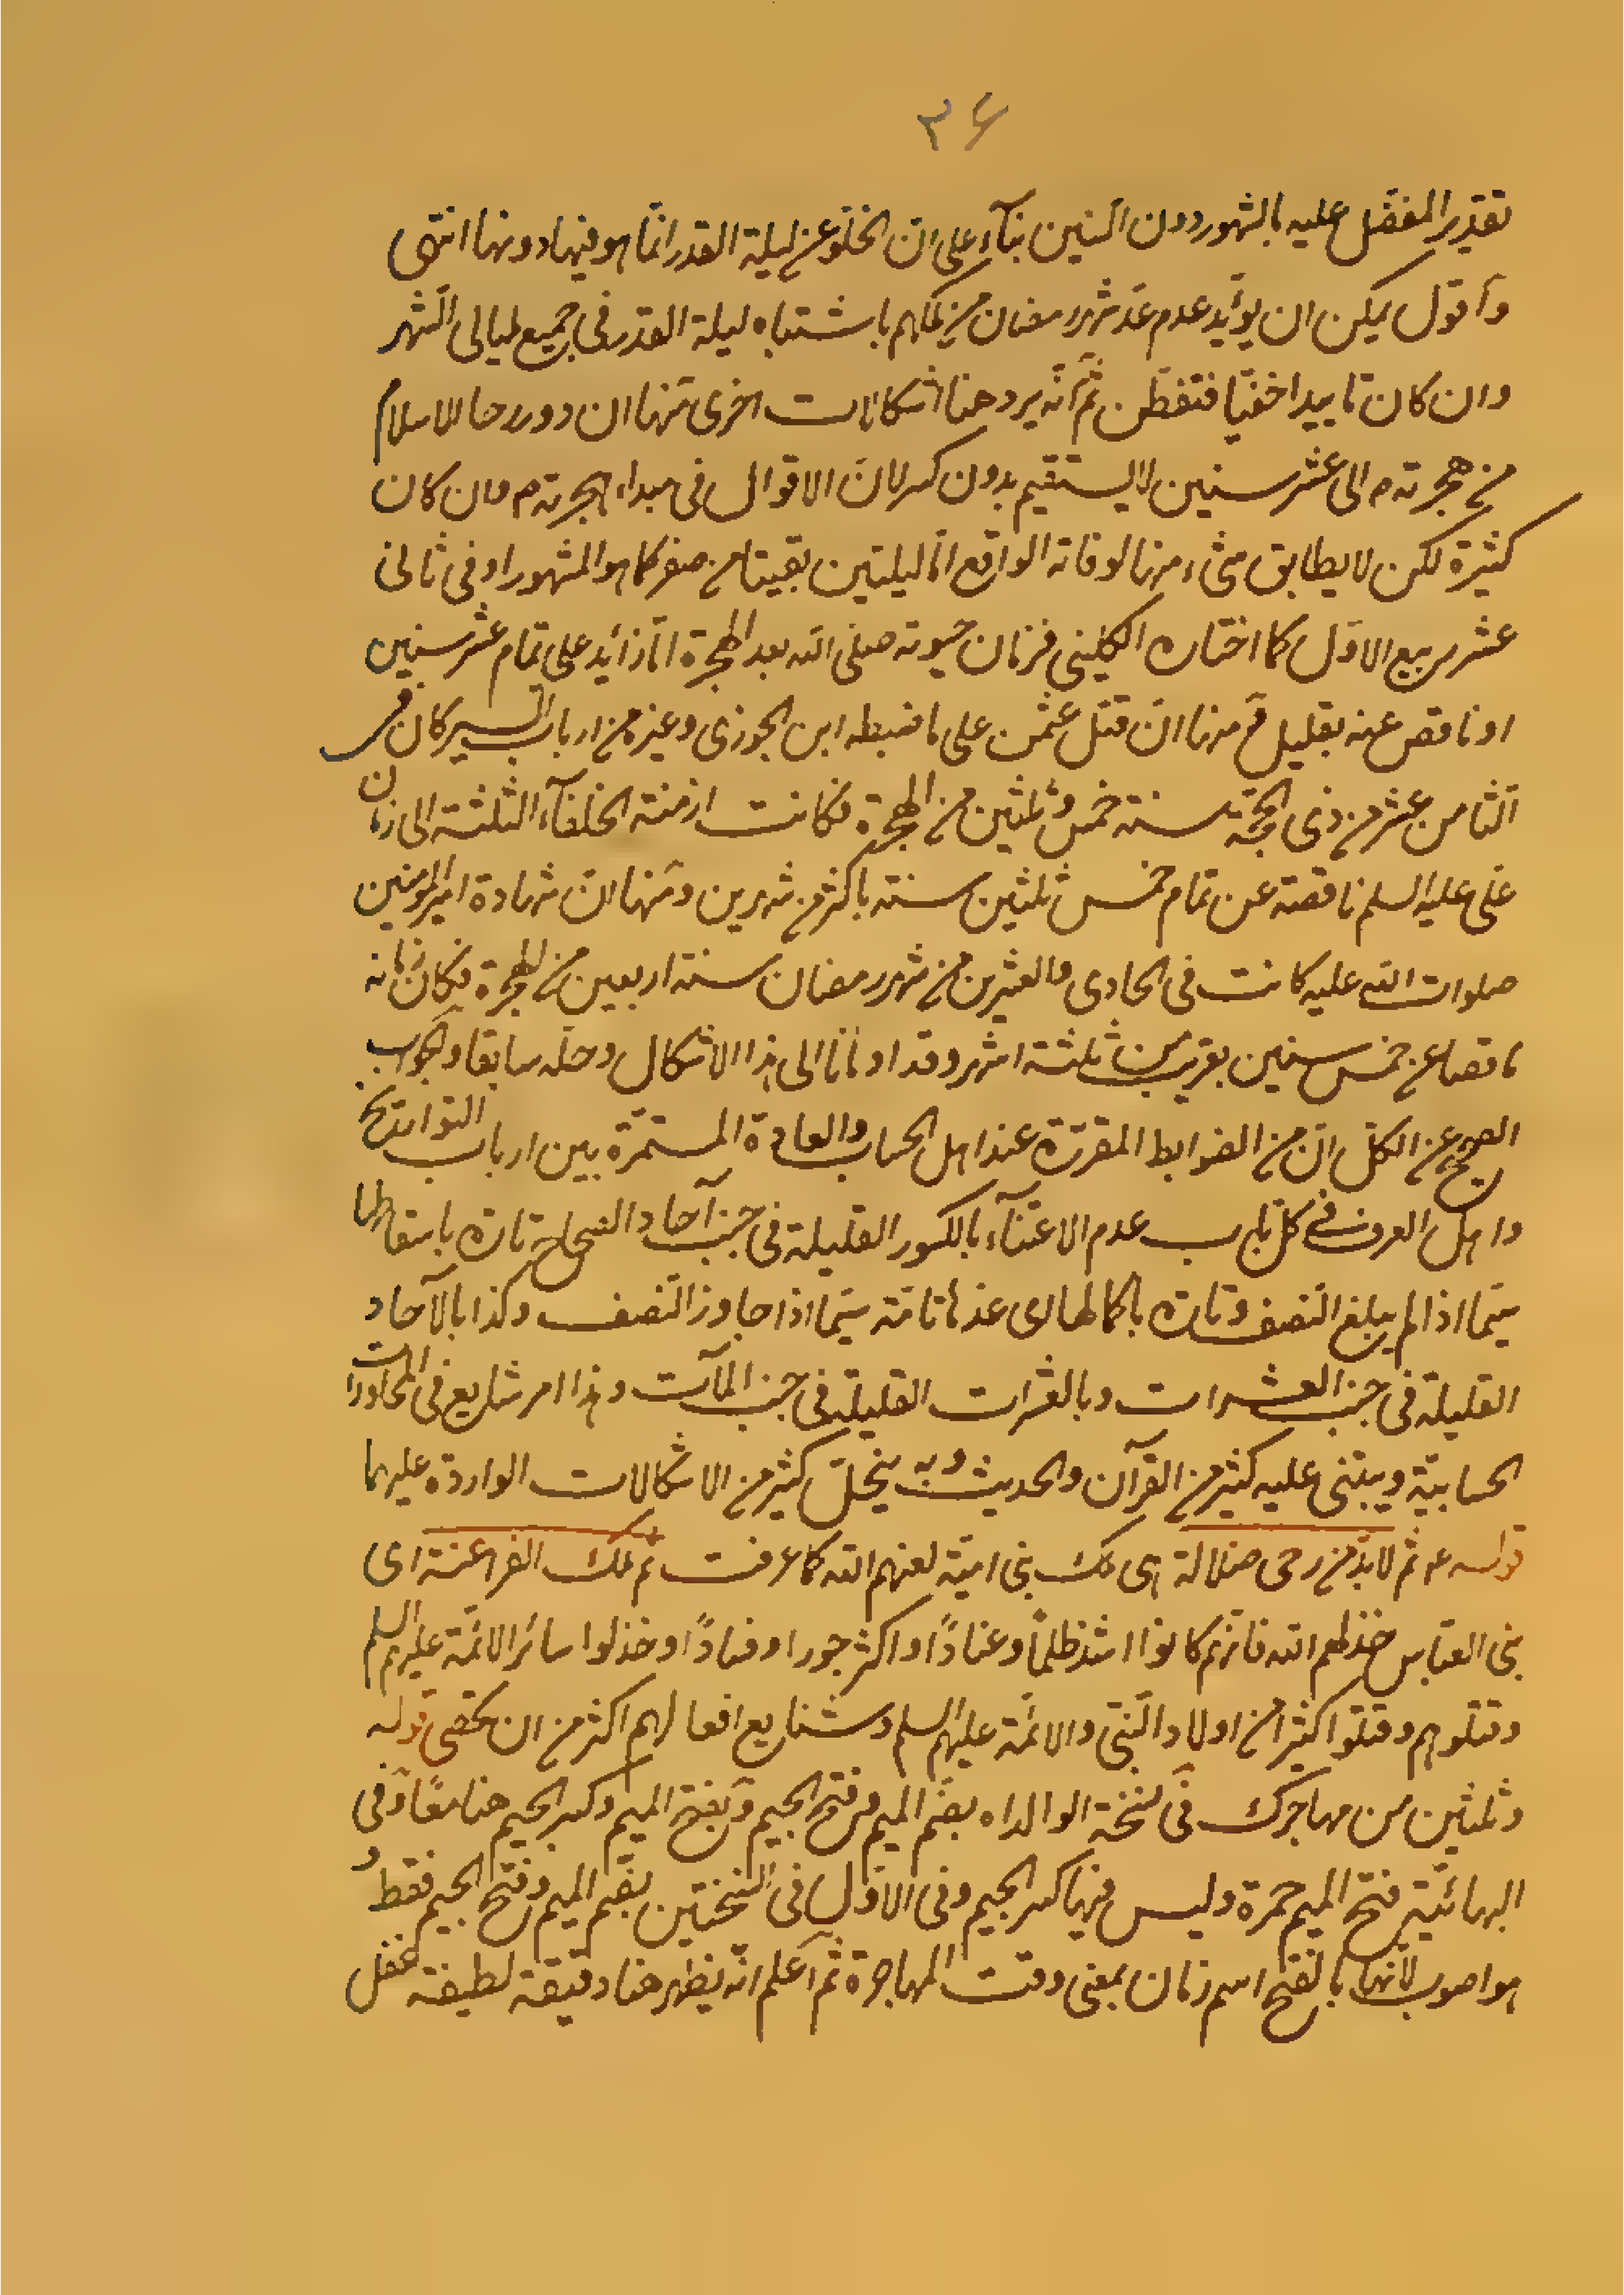 ۳۶
تقدير المفضل عليه بالشهور دون السنين بنآء على انّ الخلوّ عن ليلة القدر انّما هو فيها دونها انتهى
وآقول يمكن ان يؤيّد عدم عدّ شهر رمضان من ملكهم باشتباه ليلة القدر في جميع ليالى الشهر
وان كان تاييدا خفيّا فتفطّن ثمّ انّه يرد هنا اشكالات اخرى منها ان دور رحا الاسلام
من هجرته م الى عشر سنين لا يستقيم بدون كسر لانّ الاقوال فى مبداء هجرته م وان كان
كثيرة لكن لا يطابق شىء منها لوفاته الواقع امّا لليلتين بقيتا من صفر كما هو المشهور او فى ثانى
عشر ربيع الاوّل كما اختاره الكلينى فزمان حيوته صلى الله بعد الهجرة امّا زائد على تمام عشر سنين
او ناقص عنه بقليل و منها انّ قتل عثمن على ما ضبطه ابن الجوزى وغيره من ارباب السير كان فى
الثامن عشر من ذى الحجّة سنة خمس وثلثين من الهجرة فكانت ازمنة الخلفآء الثلثة الى زمان
على عليه السلم ناقصة عن تمام خمس ثلثين سنة باكثر من شهرين ومنها انّ شهادة امير المؤمنين
صلوات الله عليه كانت فى الحادى والعشرين من شهر رمضان سنة اربعين من الهجرة فكان زمانه
ناقصا عن خمس سنين بقريب من ثلثة اشهر وقد اومأنا الى هذا الاشكال وحلّه سابقا والجواب
الصحيح عن الكلّ انّ من الضوابط المقررّة عند اهل الحساب والعادة المستمرّة بين ارباب التواريخ
واهل العرف فى كلّ باب عدم الاعتنآء بالكسور القليلة فى جنب آحاد الصحاح تارة باسقاطها
سيّما اذا لم يبلغ النصف وتارة باكمالها اى عدها تامّة سيّما اذا جاوز النصف وكذا بالآحاد
القليلة فى جنب العشرات وبالعشرات القليلة فى جنب المآت وهذا امر شايع فى المحاورات
الحسابيّة ويبتنى عليه كثير من القرآن والحديث وبه ينحلّ كثير من الاشكالات الواردة عليهما
قوله ع ثم لا بدّ من رحى ضلالة هى ملك بنى اميّة لعنهم الله كما عرفت ثم ملك الفراعنة اى
بنى العبّاس خذلهم الله فانّهم كانوا اشدّ ظلماً وعناداً واكثر جورا وفساداً وخذلوا سائر الائمّة عليهم السلم
وقتلوهم وقتلوا كثيرا من اولاد النبىّ والائمّة عليهم السلم وشنايع افعالهم اكثر من ان تحصى قوله
وثلثين من مهاجرك فى نسخة الوالد ره بضم الميم وفتح الجيم وبفتح الميم وكسر الجيم هنا معًا وفى
البهائيّة فتح الميم حمرة وليس فيها كسر الجيم وفى الاوّل فى النسختين بضم الميم وفتح الجيم فقط و
هو اصوب لانها بالفتح اسم زمان بمعنى وقت المهاجرة ثم اعلم انّه يظهر هنا دقيقة لطيفة غفل